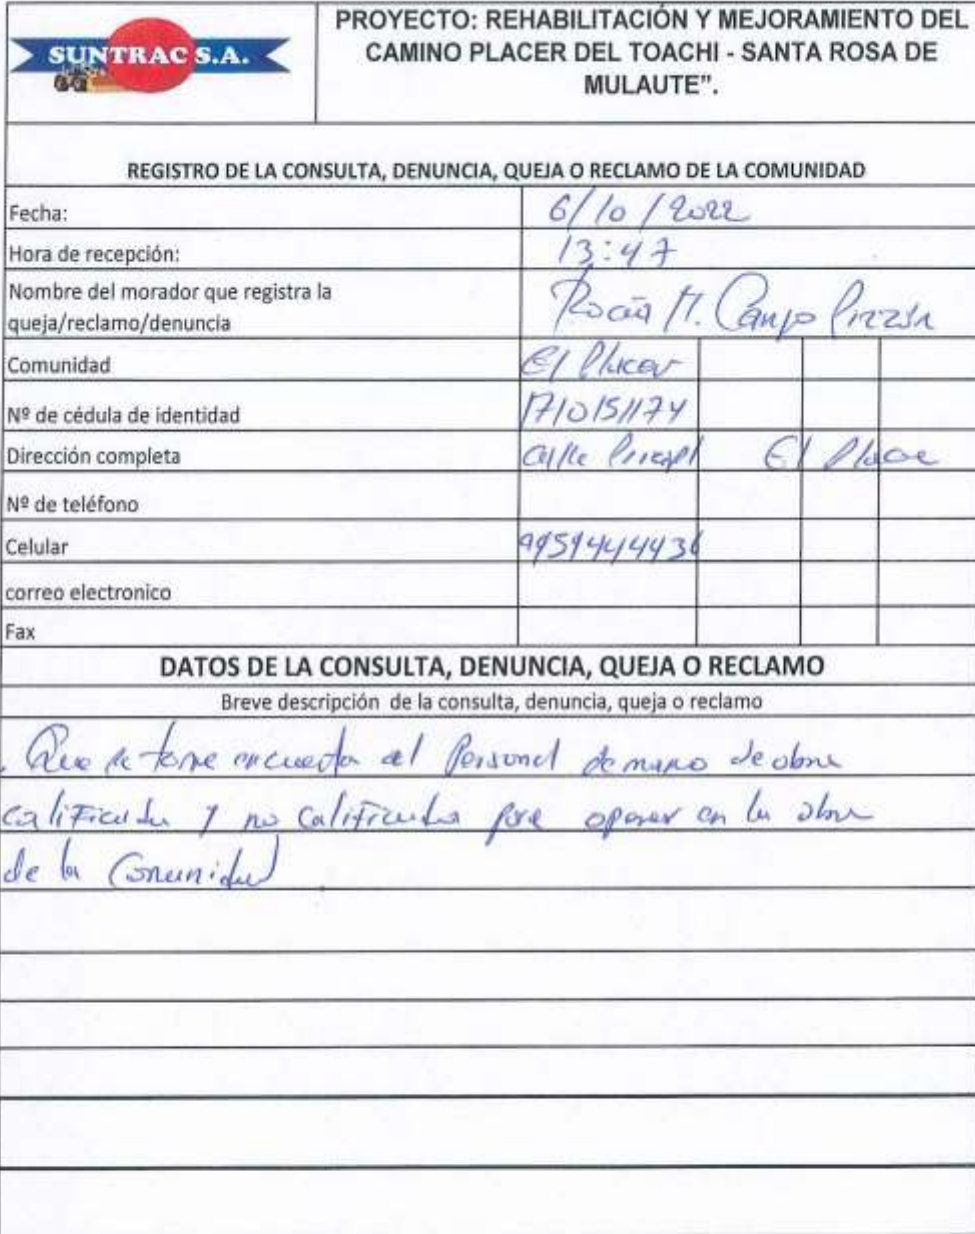 SUNTRAC S.A.
PROYECTO: REHABILITACIÓN Y MEJORAMIENTO DEL
CAMINO PLACER DEL TOACHI - SANTA ROSA DE
MULAUTE”.
REGISTRO DE LA CONSULTA, DENUNCIA, QUEJA O RECLAMO DE LA COMUNIDAD
Fecha: 6/10/2022
Hora de recepción: 13:47
Nombre del morador que registra la
queja/reclamo/denuncia Rocío M. Campo Pizzón
Comunidad El Placer
Nº de cédula de identidad 1710151174
Dirección completa Calle El Placer
Nº de teléfono
Celular
correo electronico
Fax
DATOS DE LA CONSULTA, DENUNCIA, QUEJA O RECLAMO
Breve descripción de la consulta, denuncia, queja o reclamo
. Que se tome en cuenta al Personal de mano de obra
calificada y no calificada para operar en la obra
de la Comunidad